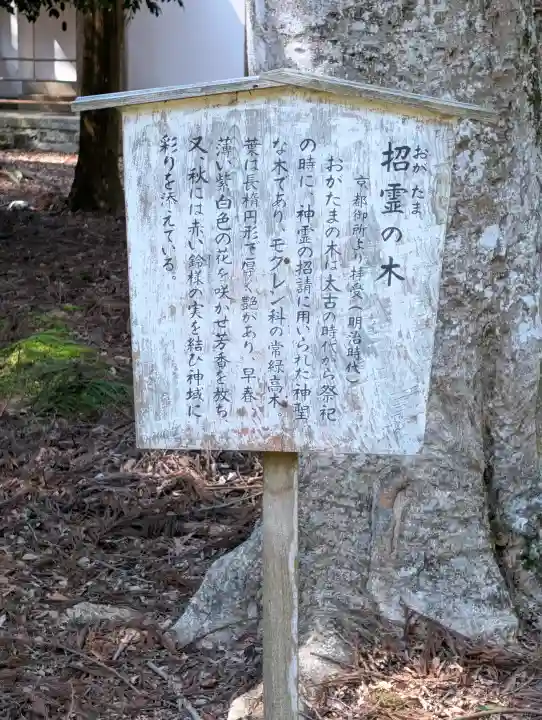 おがたま
招霊の木
京都御所より拝受(明治時代)
おがたまの木は太古の時代から祭祀
の時に、神霊の招請に用いられた神聖
な木であり、モクレン科の常緑高木、
葉は長楕円形で厚く艶があり、早春、
薄い紫白色の花を咲かせ芳香を放ち、
又、秋には赤い鈴様の実を結び神域に
彩りを添えている。